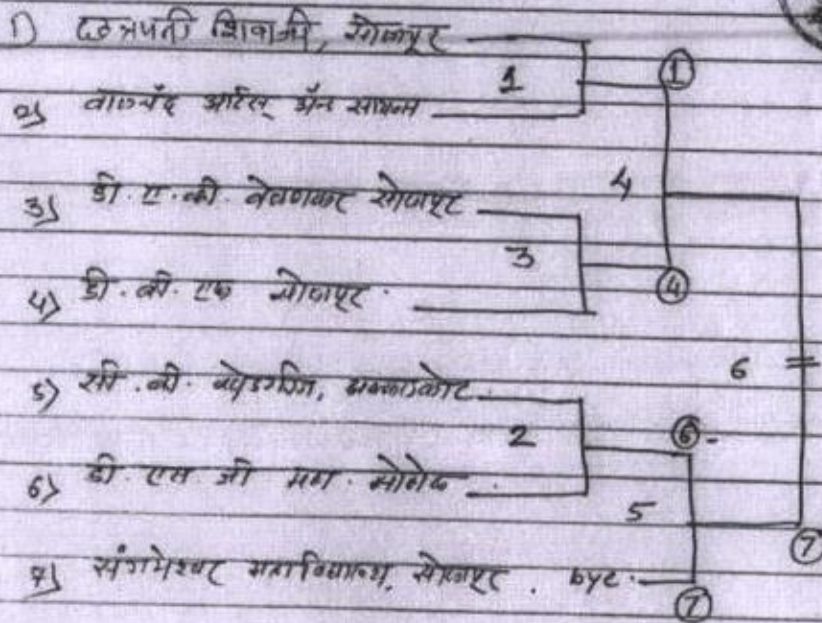 1) छत्रपती शिवाजी, सोलापूर
1
①
2) वालचंद आर्टस् अँन्ड सायन्स
4
3) डी. ए. व्ही. वेलणकर सोलापूर
3
4) डी. बी. एफ सोलापूर.
④
6
5) सी. बी. खेडगीज, अक्कलकोट
2
⑥
6) डी. एस. जी महा. मोहोळ
5
⑦
7) संगमेश्वर महाविद्यालय, सोलापूर. bye.
⑦